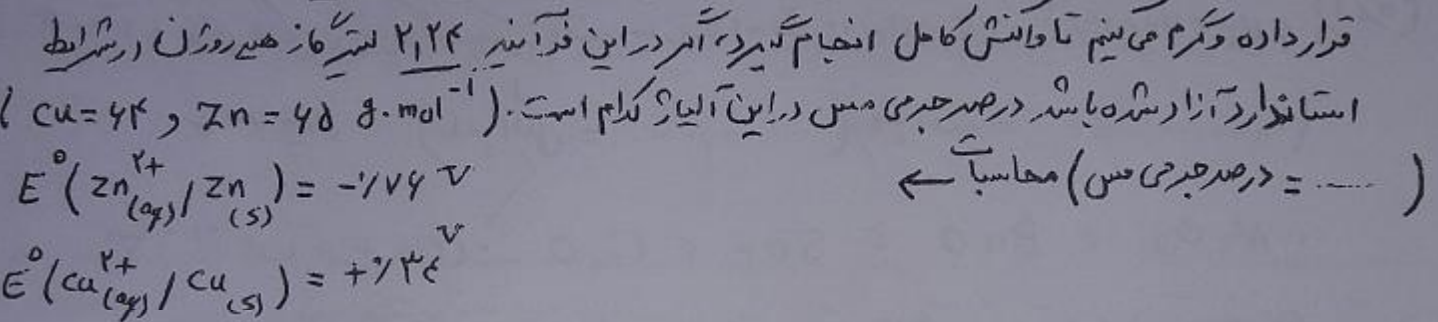 قرار داده و گرم می کنیم تا واکنش کامل انجام گیرد، اگر در این فرآیند ۲٫۲۴ لیتر گاز هیدروژن در شرایط
استاندارد آزاد شده باشد درصد جرمی مس در این آلیاژ کدام است. (Cu = ۶۴ و Zn = ۶۵ g.mol⁻¹)
(...... = درصد جرمی مس) محاسبات ←
E°(Zn²⁺(aq) / Zn(s)) = -۰/۷۶ V
E°(Cu²⁺(aq) / Cu(s)) = +۰/۳۴ V